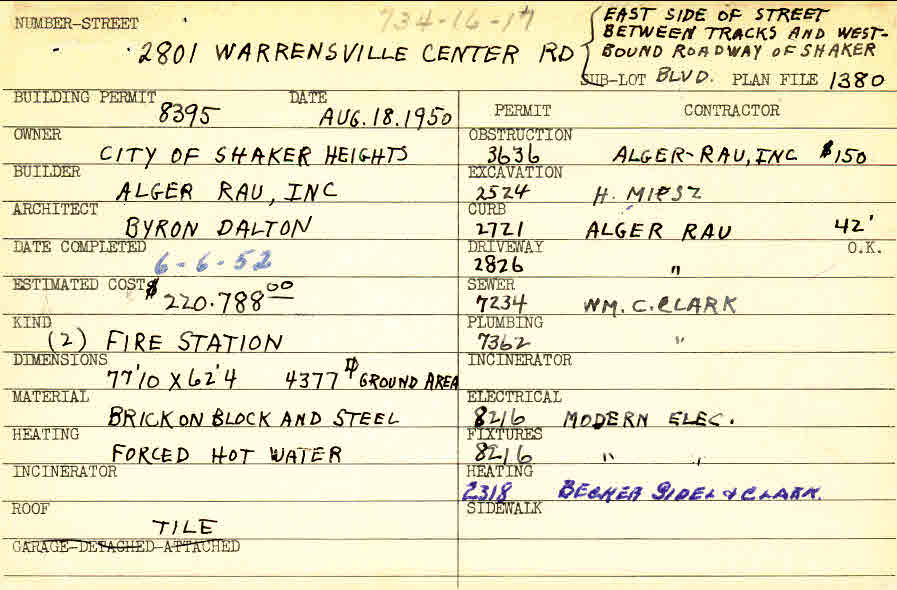 734-16-17
NUMBER-STREET
2801 WARRENSVILLE CENTER RD
EAST SIDE OF STREET
BETWEEN TRACKS AND WEST-
BOUND ROADWAY OF SHAKER
BLVD.
SUB-LOT PLAN FILE 1380
BUILDING PERMIT DATE
8395 AUG. 18. 1950
OWNER
CITY OF SHAKER HEIGHTS
BUILDER
ALGER RAU, INC
ARCHITECT
BYRON DALTON
DATE COMPLETED
6-6-52
ESTIMATED COST
$220.788 00
KIND
(2) FIRE STATION
DIMENSIONS
77'10 X 62'4 4377 GROUND AREA
MATERIAL
BRICK ON BLOCK AND STEEL
HEATING
FORCED HOT WATER
INCINERATOR
ROOF
TILE
GARAGE-DETACHED-ATTACHED
PERMIT CONTRACTOR
OBSTRUCTION
3636 ALGER-RAU, INC $150
EXCAVATION
2524 H.
CURB
2721 ALGER RAU 42'
DRIVEWAY O.K.
2826 "
SEWER
7234 WM. C. CLARK
PLUMBING
7362 "
INCINERATOR
ELECTRICAL
8216 MODERN ELEC.
FIXTURES
8216 " "
HEATING
2318 BECKER & CLARK.
SIDEWALK